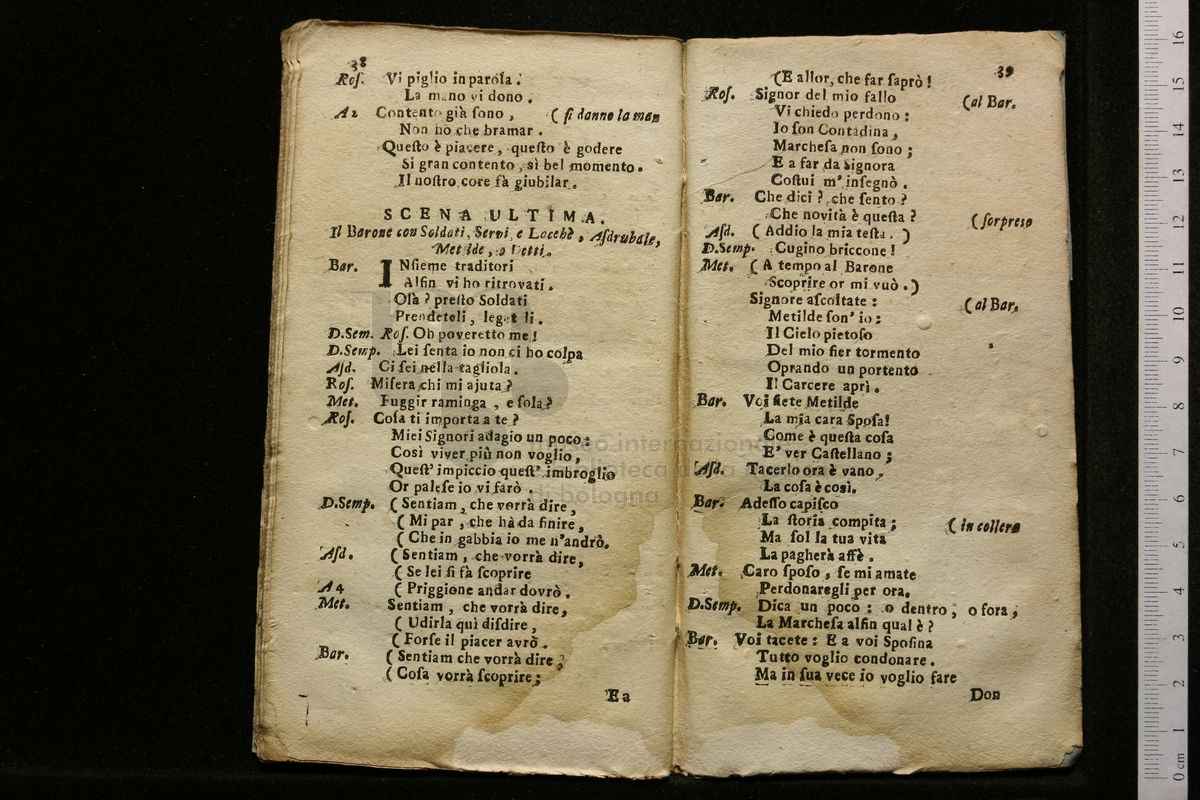 38
Roſ. Vi piglio in parola.
La mano vi dono.
A 2 Contento già ſono, ( ſi danno la man
Non hò che bramar.
Queſto è piacere, queſto è godere
Si gran contento, sì bel momento.
Il noſtro core fà giubilar.
SCENA ULTIMA.
Il Barone con Soldati, Servi, e Lacchè, Aſdrubale,
Metilde, e Detti.
Bar. INſieme traditori
Alfin vi ho ritrovati.
Olà? preſto Soldati
Prendeteli, legateli.
D.Sem. Roſ. Oh poveretto me!
D.Semp. Lei ſenta io non ci ho colpa
Aſd. Ci ſei nella tagliola.
Roſ. Miſera chi mi ajuta?
Met. Fuggir raminga, e ſola?
Roſ. Coſa ti importa a te?
Miei Signori adagio un poco:
Così viver più non voglio,
Queſt' impiccio queſt' imbroglio
Or paleſe io vi farò.
D.Semp. ( Sentiam, che vorrà dire,
( Mi par, che hà da finire,
( Che in gabbia io me n'andrò.
Aſd. ( Sentiam, che vorrà dire,
( Se lei ſi fà ſcoprire
A 4 ( Priggione andar dovrò.
Met. Sentiam, che vorrà dire,
( Udirla quì diſdire,
( Forſe il piacer avrò.
Bar. ( Sentiam che vorrà dire;
( Coſa vorrà ſcoprire;
E a
39
(E allor, che far ſaprò!
Roſ. Signor del mio fallo (al Bar.
Vi chiedo perdono:
Io ſon Contadina,
Marcheſa non ſono;
E a far da Signora
Coſtui m' inſegnò.
Bar. Che dici? che ſento?
Che novità è queſta? (ſorpreso
Aſd. ( Addio la mia teſta. )
D.Semp. Cugino briccone!
Met. ( A tempo al Barone
Scoprire or mi vuò.)
Signore aſcoltate: (al Bar.
Metilde ſon' io;
Il Cielo pietoſo
Del mio fier tormento
Oprando un portento
Il Carcere aprì.
Bar. Voi ſiete Metilde
La mia cara Spoſa!
Come è queſta coſa
E' ver Caſtellano;
Aſd. Tacerlo ora è vano,
La coſa è così.
Bar. Adeſſo capiſco
La ſtoria compita; ( in collera
Ma ſol la tua vita
La pagherà affè.
Met. Caro ſpoſo, ſe mi amate
Perdonaregli per ora.
D.Semp. Dica un poco: o dentro, o fora,
La Marcheſa alfin qual è?
Bar. Voi tacete: E a voi Spoſina
Tutto voglio condonare.
Ma in ſua vece io voglio fare
Don
museo internazionale
biblioteca della
di bologna
0 cm 1 2 3 4 5 6 7 8 9 10 11 12 13 14 15 16